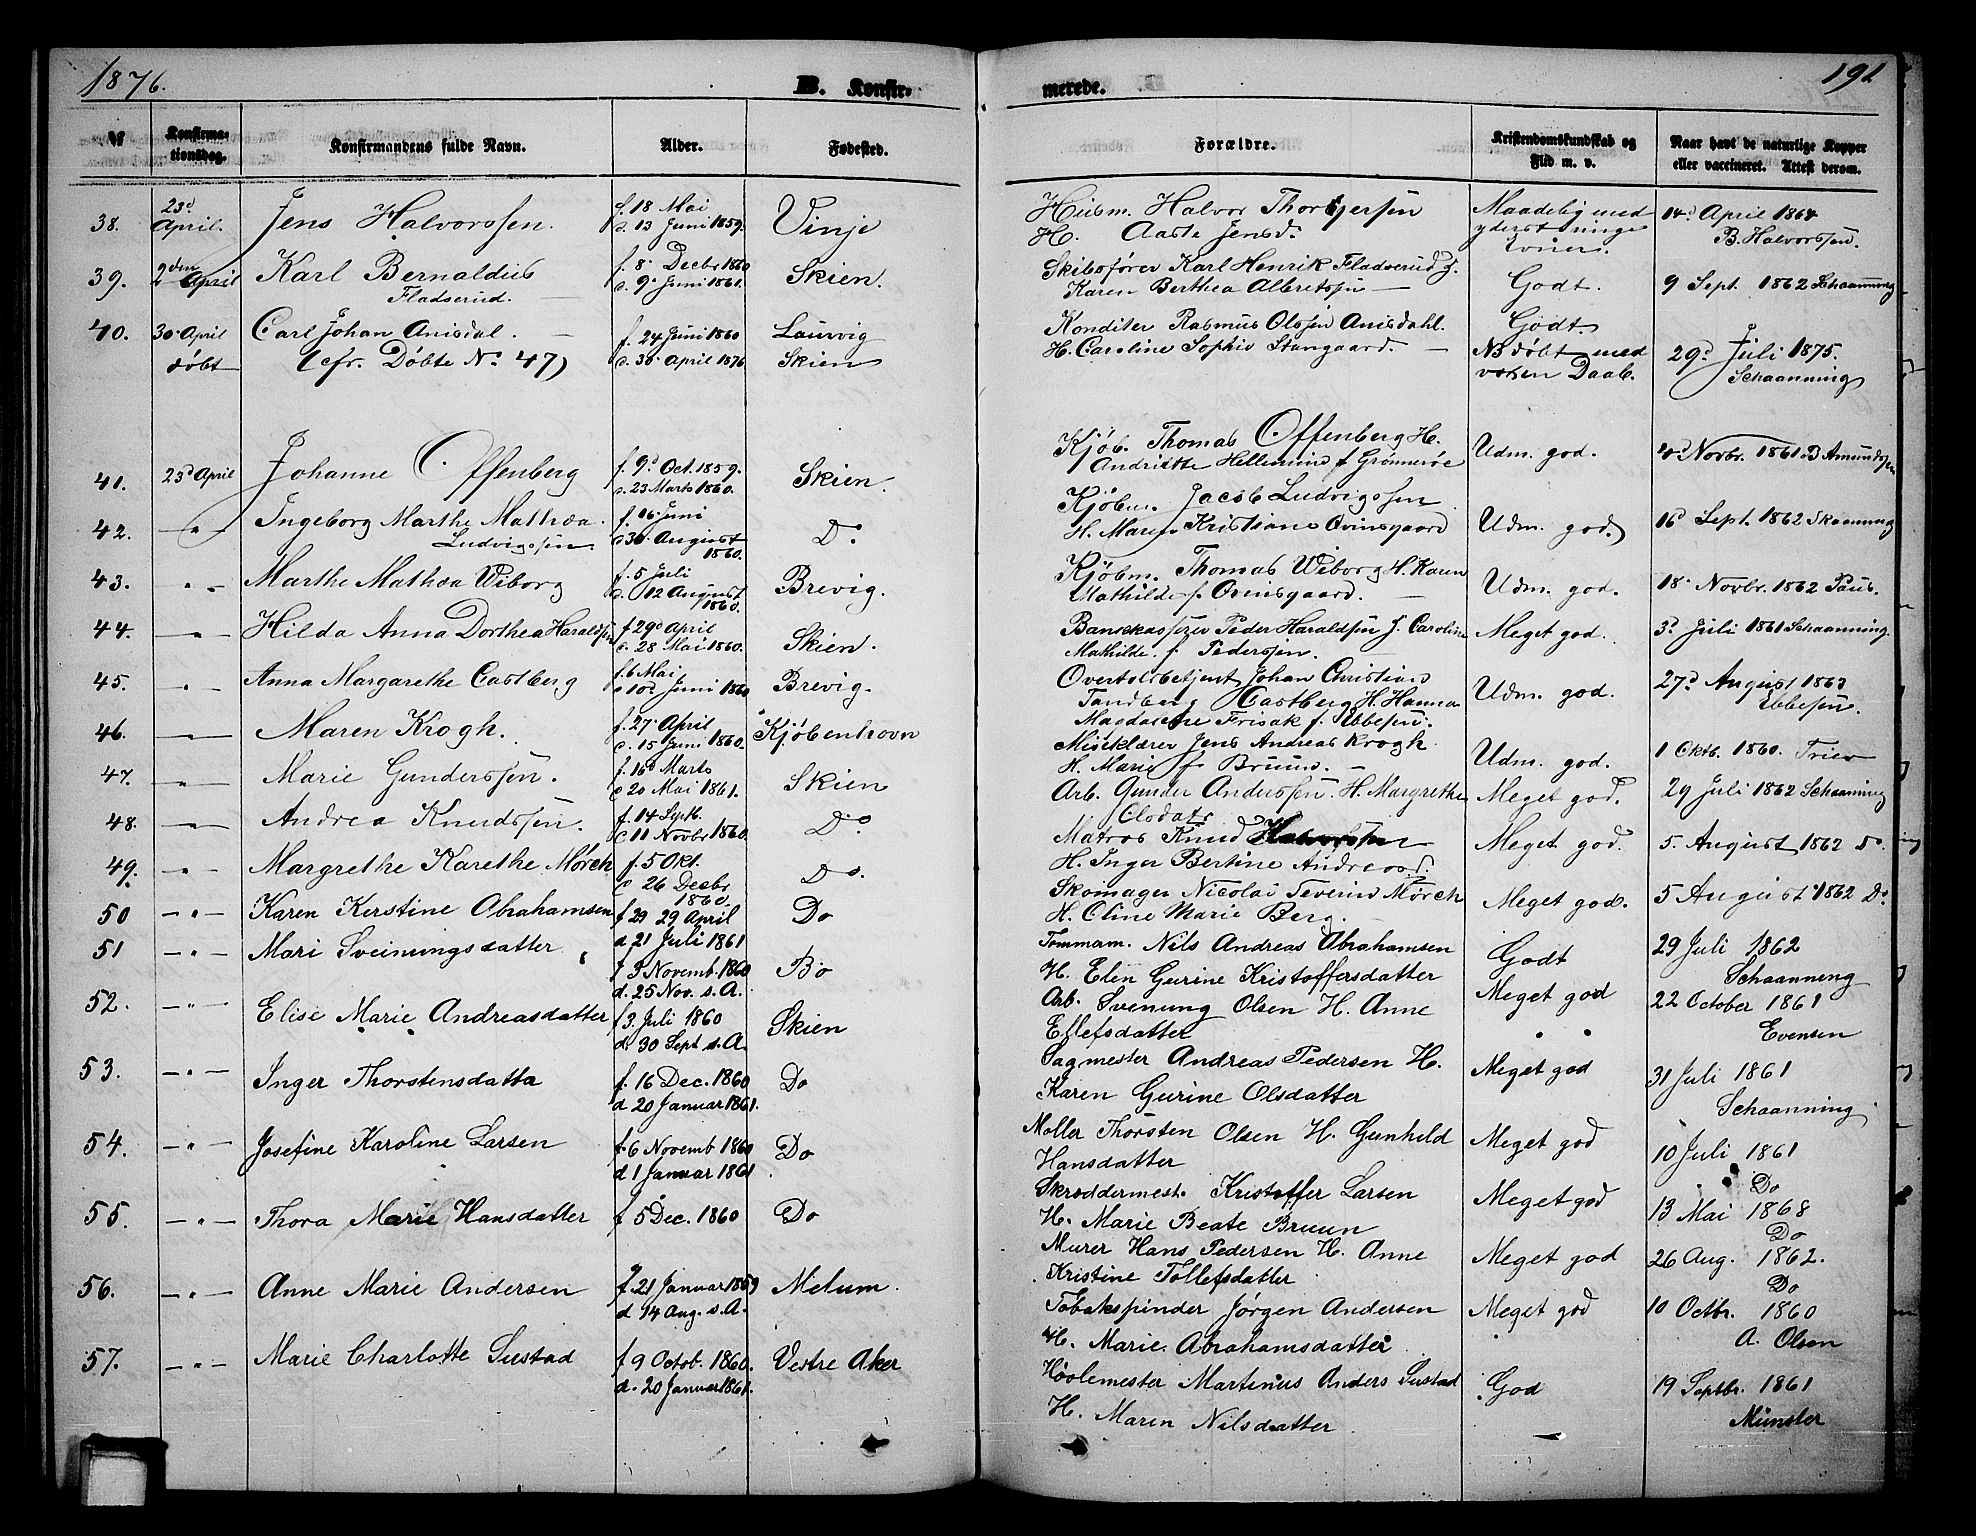 1876.
B. Konfir-
№
Konfirma-
tionsdag.
Konfirmandens fulde Navn.
Alder.
Fødested.
38.
23d
April.
Jens Halvorssen.
f. 18 Mai
d. 13 Juni 1859.
Vinje
39.
2den
April
Karl Bernaldus
Fladserud.
f. 8. Decbr 1860
d. 9. Juni 1861.
Skien.
40.
30. April
døbt
Carl Johan Anisdal.
(cfr. Døbte No. 47)
f. 24 Juni 1860
d. 30. April 1876
Laurvig
Skien
41.
23d April
Johanne Offenberg
f. 9d Oct. 1859.
d. 23 Marts 1860.
Skien.
42.
— " —
Ingeborg Marthe Mathæa
Ludvigssen
f. 16. Juni
d. 30. August
1860.
Do
43.
" —
Marthe Mathæa Wiborg
f. 5 Juli
d. 12 August
1860.
Brevig.
44.
— " —
Hilda Anna Dorthea Haraldsen
f. 29d April
d. 28 Mai 1860.
Skien.
45.
— " —
Anna Margarethe Castberg
f. 6 Mai
d 10d Juni 1860
Brevig.
46.
— " —
Maren Krogh.
f. 27. April
d. 15 Juni 1860.
Kjøbenhavn
47.
— " —
Marie Gunderssen.
f. 16d Marts
d 20 Mai 1861.
Skien
48.
— " —
Andrea Knudssen.
f. 14 Septb.
d 11 Novbr 1860.
Do
49.
— " —
Margrethe Karethe Mørch
f. 5 Okt.
d 26 Decbr
1860.
Do.
50
— " —
Karen Kerstine Abrahamsen
f 29 29 April
d 21 Juli 1861
Do
51
— " —
Mari Sveinungsdatter
f 3 Novemb. 1860
d. 25 Nov. s. A.
Bø
52.
— " —
Elise Marie Andreasdatter
f 3. Juli 1860
d. 30 Sept s. A.
Skien
53.
— " —
Inger Thorstensdatta
f. 16 Dec. 1860
d 20 Januar 1861.
Do
54.
— " —
Josefine Karoline Larsen
f. 6 Novemb 1860
d 1 Januar 1861
Do
55.
— " —
Thora Marie Hansdatter
f 5 Dec. 1860
Do
56.
— " —
Anne Marie Andersen
f. 21 Januar 1859
d 14 Aug. s. A.
Melum.
57.
— " —
Marie Charlotte Sustad
f 9 Octob. 1860.
d. 20 Januar 1861.
Vestre Aker
191
merede.
Forældre.
Kristendomskundskab og
Flid m. v.
Naar havt de naturlige Kopper
eller vaccineret. Attest derom.
Husm. Halvor Thorbjersen
H. Aaste Jensd.
Maadelig med
yderst ringe
Evner.
14d April 1864
B. Halvorssen.
Skibsfører Karl Henrik Fladserud
Karen Berthea Albretsen —
Godt.
9 Sept. 1862 Schaanning
Konditer Rasmus Olssen Anisdahl.
H. Caroline Sophie Stangaard. —
Godt.
NB døbt med
voxen Daab.
29d Juli 1875.
Schaanning
Kjøb. Thomas Offenberg H.
Andridtte Hellemine f. Grønnerøe
Udm. god.
4d Novbr. 1861. B Amundssen
Kjøbm. Jacob Ludvigssen
H. Maren Kristiane Ovinsgaard
Udm. god.
16d Sept. 1862 Skaanning
Kjøbm. Thomas Wiborg H. Karen
Mathilde f Ovinsgaard. —
Udm. god.
18. Novbr. 1862 Paus.
Bankkasserer Peder Haraldsen H. Caroline
Mathilde. f. Pederssen.
Meget god.
3d Juli 1861 Schaanning.
Overtoldbetjent Johan Christian
Tandberg Castberg H. Hanna
Magdalene Frisak f. Ebbesen.
Udm. god.
27d August 1863
Ebbesen.
Jens Andreas Krogh
H. Marie f. Bruun. —
Udm. god.
1 Oktb. 1860. Trier
Arb. Gunder Anderssen. H. Margrethe
Clodats
Meget god.
29 Juli 1862 Schaanning
Matros Knud Halvorssen
H. Inger Bertine Andreasd.
Meget god.
5. August 1862 do
Skomager Nicolai Severin Mørch
H. Oline Marie Berg.
Meget god.
5 August 1862 Do
Tømmerm. Nils Andreas Abrahamsen
H. Elen Gurine Kristoffersdatter
Godt
29 Juli 1862
Schaanning
Arb. Svenung Olsen H. Anne
Ellefsdatter
Meget god
22 October 1861
Evensen
Sagmester Andreas Pedersen H.
Karen Gurine Olsdatter
Meget god
31 Juli 1861
Schaanning
Møller Thorsten Olsen H. Gunhild
Hansdatter
Meget god
10 Juli 1861
Do
Skræddermest. Kristoffer Larsen
H. Marie Beate Bruun
Meget god
13 Mai 1868
Do
Murer Hans Pedersen H. Anne
Kristine Tollefsdatter
Meget god
26 Aug. 1862.
Do
Tobakspinder Jørgen Andersen
H. Marie Abrahamsdatter
Meget god
10 Octbr. 1860
A. Olsen
Høvlemester Martinus Anders Sustad
H. Maren Nilsdatter
God
19 Septbr. 1861
Münster